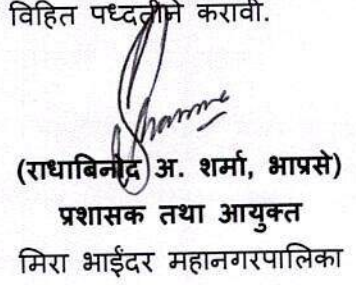 विहित पध्दतीने करावी.
Sharma
(राधाबिनोद अ. शर्मा, भाप्रसे)
प्रशासक तथा आयुक्त
मिरा भाईंदर महानगरपालिका